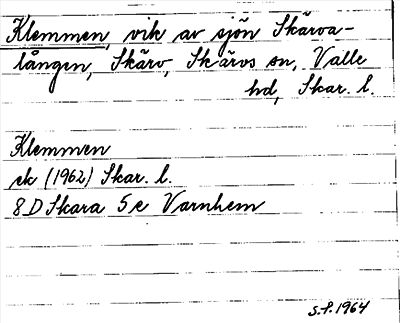 Klemmen, vik av sjön Skärva-
lången, Skärv, Skärvs sn, Valle
hd, Skar. l.
Klemmen
ek (1962) Skar. l.
8D Skara 5e Varnhem
S.P. 1964